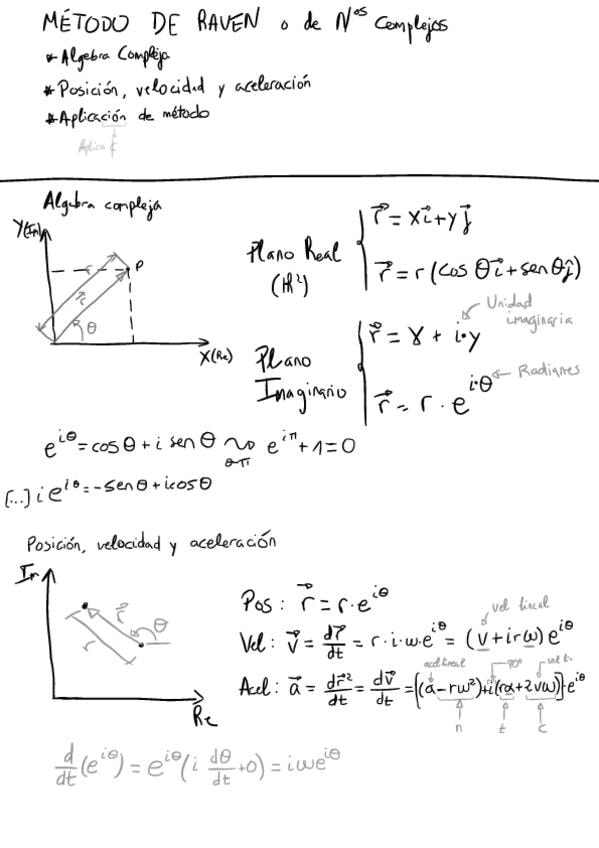 MÉTODO DE RAVEN o de Nos Complejos
* Algebra Compleja
* Posición, velocidad y aceleración
* Aplicación de método
Aplica
Algebra compleja
Y(Im)
P
r
θ
X(Re)
Plano Real
(ℝ²)
r⃗ = xi⃗ + yj⃗
r⃗ = r (cos θ i⃗ + sen θ j⃗)
Unidad
imaginaria
Plano
Imaginario
r⃗ = x + i·y
r⃗ = r · e^{i·θ}
Radianes
e^{iθ} = cos θ + i sen θ ~> θ=π e^{iπ} + 1 = 0
(...) i e^{iθ} = -sen θ + i cos θ
Posición, velocidad y aceleración
Im
r⃗
θ
r
Re
Pos: r⃗ = r · e^{iθ}
vel lineal
Vel: v⃗ = dr⃗/dt = r · i · ω · e^{iθ} = (v + irω) e^{iθ}
acel lineal
90°
vel t.
Acel: a⃗ = dr⃗²/dt = dv⃗/dt = [(a - rω²) + i(rα + 2vω)] · e^{iθ}
n t c
d/dt (e^{iθ}) = e^{iθ} (i dθ/dt + 0) = iωe^{iθ}